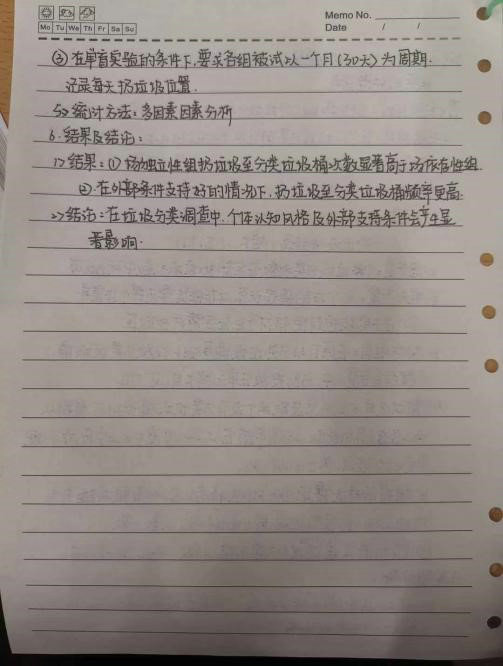 Memo No.
Mo Tu We Th Fr Sa Su
Date / /
③ 在单盲实验的条件下,要求各组被试以一个月(30天)为周期.
记录每天扔垃圾位置.
5> 统计方法:多因素因素分析
6. 结果及结论:
1> 结果:① 场独立性组扔垃圾至分类垃圾桶次数显著高于场依存性组.
② 在外部条件支持好的情况下,扔垃圾至分类垃圾桶频率更高.
2> 结论:在垃圾分类调查中,个体认知风格及外部支持条件会产生显
著影响.